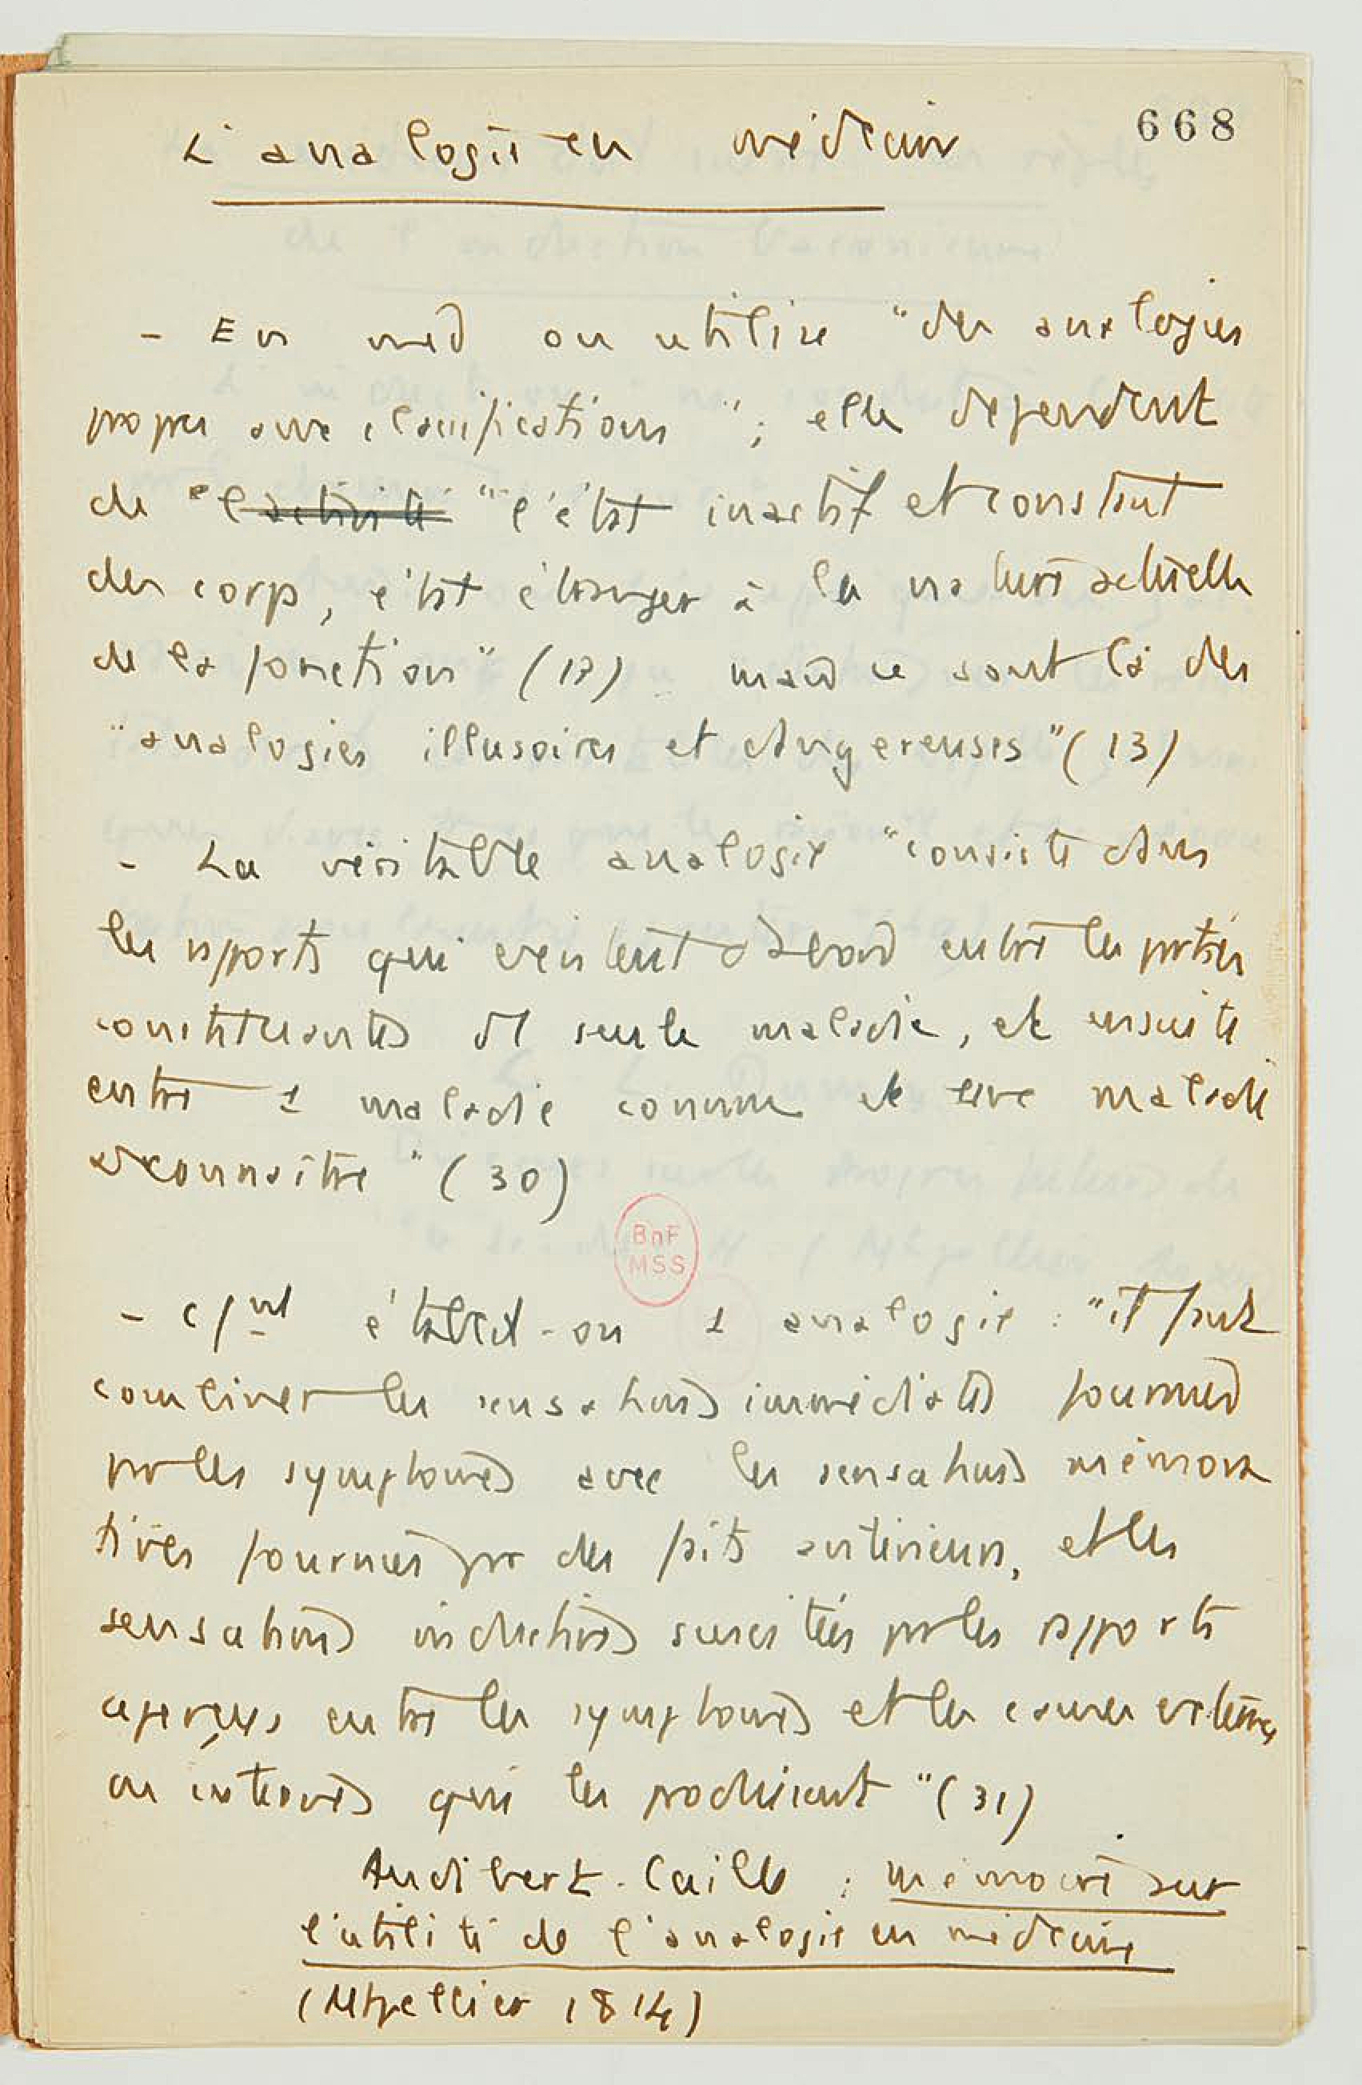 668
L'analogie en médecine
- En med on utilise "des analogies
propres aux classifications" ; elles dépendent
de "l'activité "l'état inactif et constant
des corps, état étranger à la nature actuelle
de la fonction" (12) mais ce sont là des
"analogies illusoires et dangereuses" (13)
- La véritable analogie "consiste dans
les rapports qui existent d'abord entre les parties
constituantes d'1 seule maladie, et ensuite
entre 1 maladie connue et une maladie
à connaître" (30)
BnF
MSS
- établit-on 1 analogie : "il faut
combiner les sensations immédiates fournies
par les symptomes avec les sensations mémora
tives fournies par des faits antérieurs, et les
sensations inductives suscitées par les rapports
aperçus entre les symptomes et les causes externes
ou internes qui les produisent" (31)
Audibert-Caille : mémoire sur
l'utilité de l'analogie en médecine
(Mtpellier 1814)